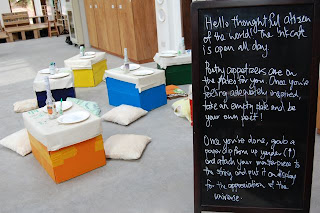 Hello thoughtful citizen
of the world! The Ink café
is open all day.
Poetry appetizers are on
the tables for you. Once you're
feeling adequately inspired,
take an empty plate and be
your own poet!
Once you're done, grab a
paper clip from up yonder (↑)
and attach your masterpiece to
the string and put it on display
for the appreciation of the
universe.